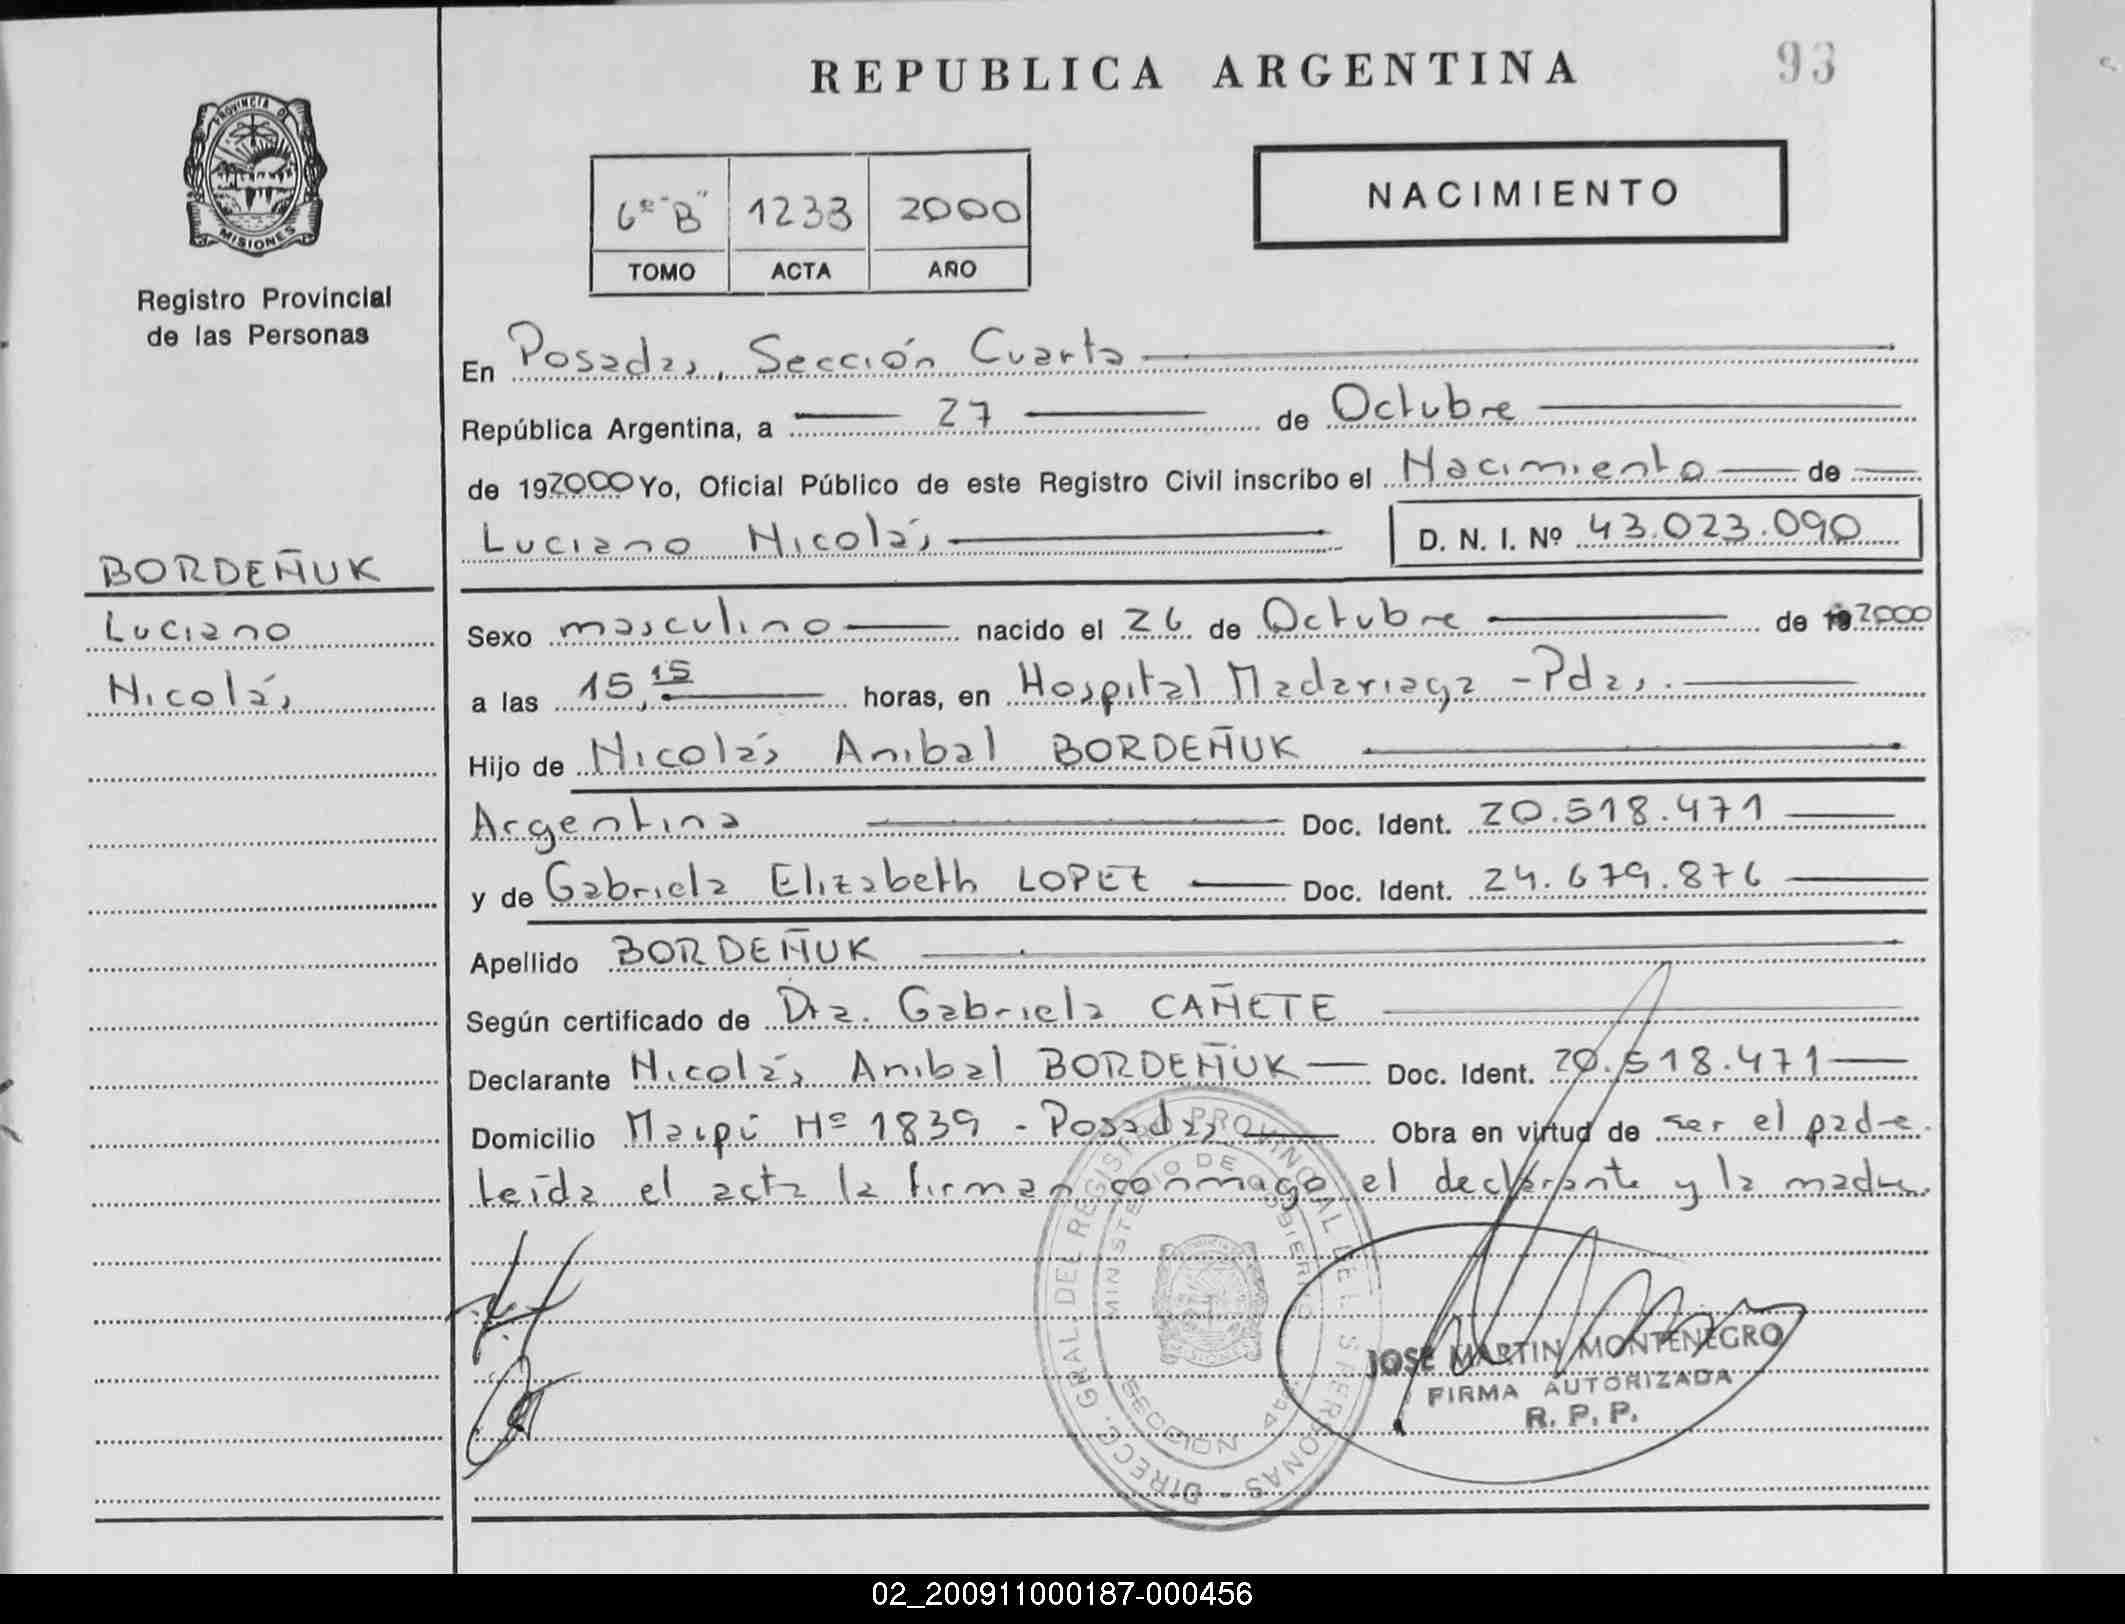 REPUBLICA ARGENTINA
93
PROVINCIA DE
MISIONES
Registro Provincial
de las Personas
6º "B" 1233 2000
TOMO ACTA AÑO
NACIMIENTO
En Posadas, Sección Cuarta
República Argentina, a 27 de Octubre
de 192000 Yo, Oficial Público de este Registro Civil inscribo el Nacimiento de
Luciano Nicolás
D. N. I. Nº 43.023.090
BORDEÑUK
Luciano
Nicolás
Sexo masculino nacido el 26 de Octubre de 192000
a las 15,15 horas, en Hospital Madariaga - Pdas.
Hijo de Nicolás Anibal BORDEÑUK
Argentina Doc. Ident. 20.518.471
y de Gabriela Elizabeth LOPEZ Doc. Ident. 24.679.876
Apellido BORDEÑUK
Según certificado de Dra. Gabriela CAÑETE
Declarante Nicolás Anibal BORDEÑUK Doc. Ident. 20.518.471
Domicilio Maipú Nº 1839 - Posadas Obra en virtud de ser el padre.
Leída el acta la firman conmigo el declarante y la madre.
DIRECC. GRAL. DEL REGISTRO PROVINCIAL DE L S PERSONAS -
MINISTERIO DE GOBIERNO
SECCION 4ta
JOSE MARTIN MONTENEGRO
FIRMA AUTORIZADA
R. P. P.
02_200911000187-000456